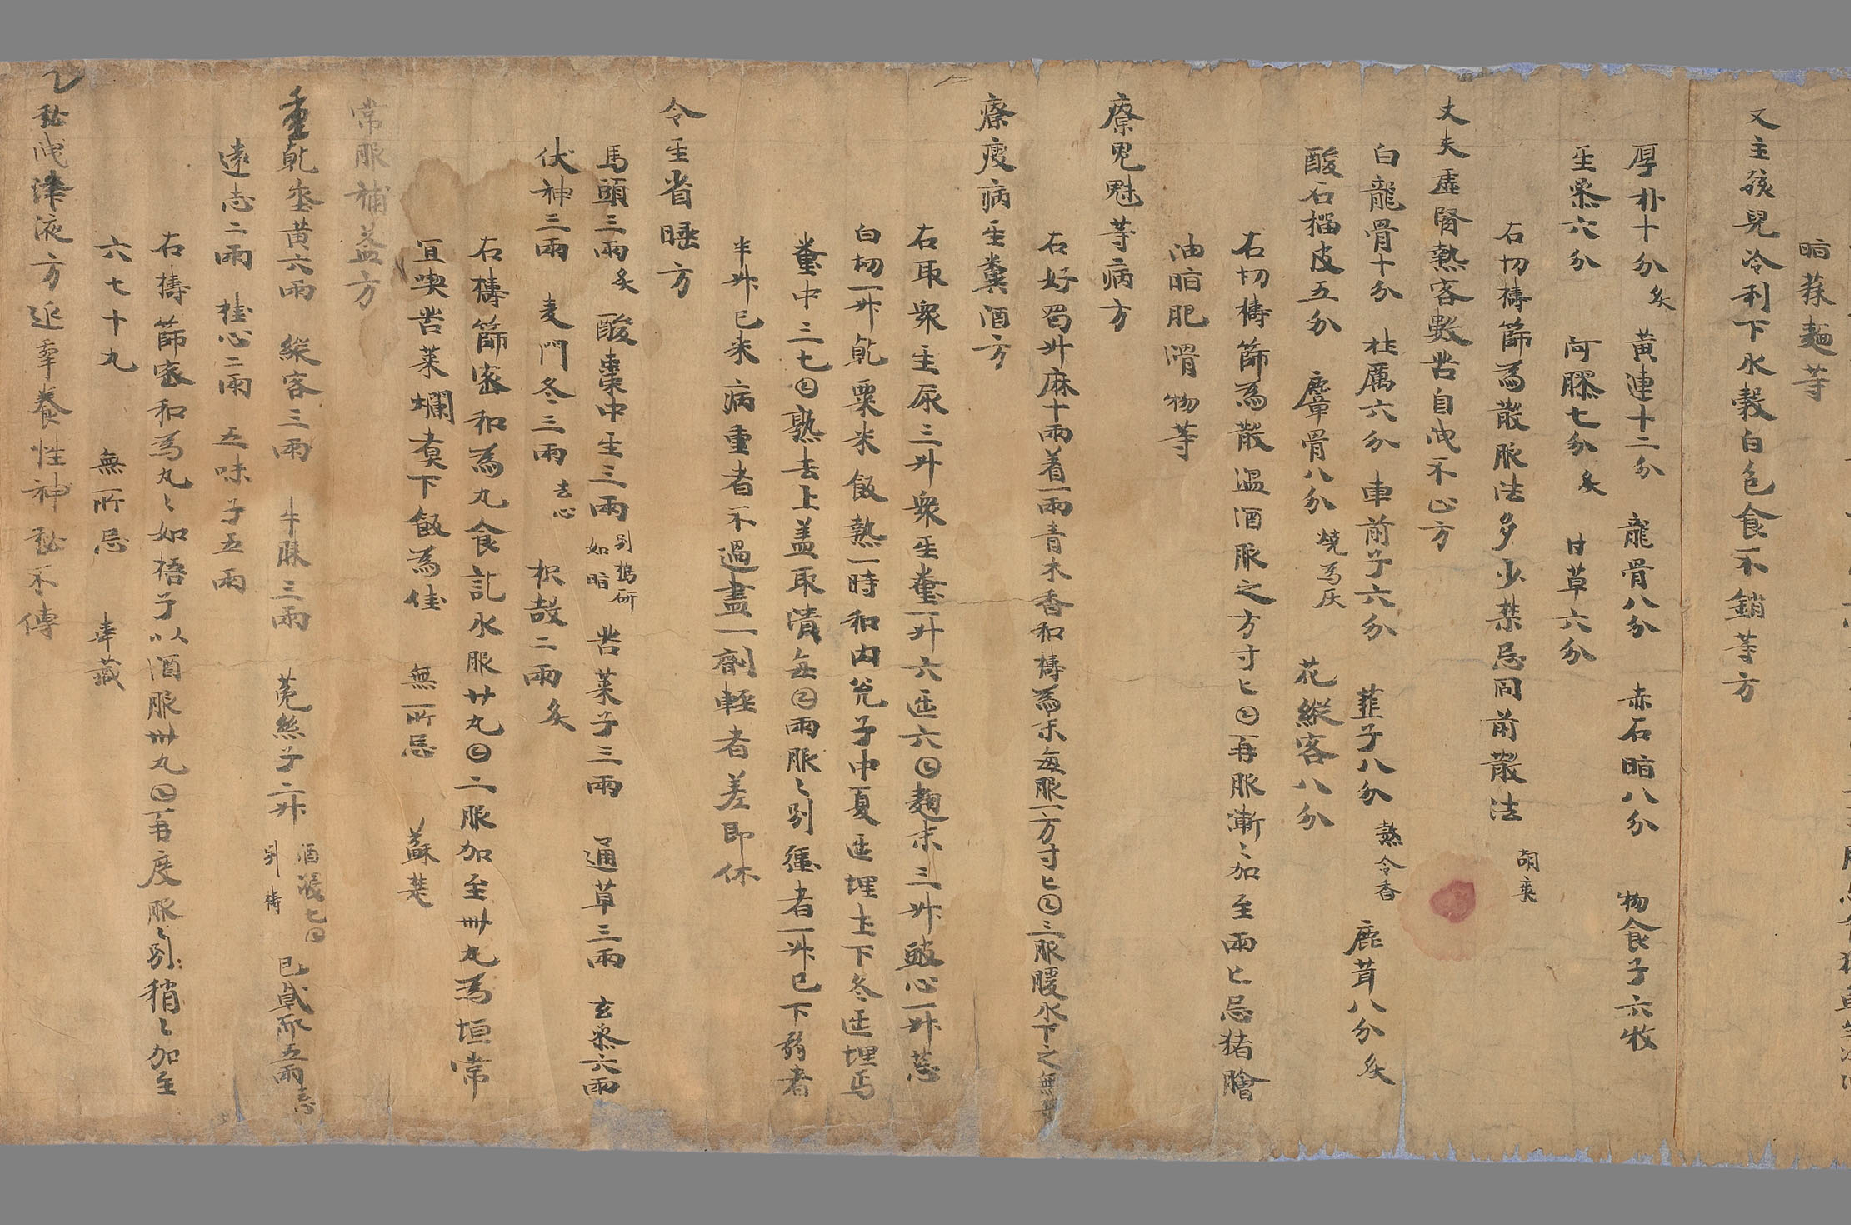 脂蒜麺等
又主孩兒冷利下水穀白色食不銷等方
厚朴十分炙 黄連十二分 龍骨八分 赤石脂八分 物食子六牧
生薑六分 阿膠七分炙 甘草六分
右切擣篩為散服法多少禁忌同前散法
丈夫虚腎熱客數苦自洩不止方
白龍骨十分 牡厲六分 車前子六分 韮子八分 熬令香 鹿茸八分炙
酸石榴皮五分 麞骨八分 燒為灰 花縱容八分
右切擣篩為散温酒服之方寸匕日再服漸々加至兩匕忌猪膾
油脂肥滑物等
療鬼魅等病方
右好蜀升麻十兩着一兩青木香和擣為末每服一方寸匕日三服暖水下之無
療瘦病生糞酒方
右取衆生尿三升衆生糞一升六迊六日麹末三升豉心一升葱
白切一升乾粟米飯熱一時和内瓮子中夏迊埋土下冬迊埋馬
糞中二七日熟去上盖取漬每日兩服々別强者一升已下弱者
半升已来病重者不過盡一劑輕者差即休
令生省睡方
馬頭三兩炙 酸棗中生三兩 別擣研如脂 苦菜子三兩 通草三兩 玄參六兩
伏神三兩 麦門冬三兩 去心 枳殼二兩炙
右擣篩蜜和為丸食訖水服廿丸日二服加至卌丸為垣常
宜喫苦菜爛煑下飯為佳 無所忌 蘇楚
常服補益方
乾埊黄六兩 縱容三兩 牛膝三兩 菟絲子二升 酒浸七日別擣 巴戟 五兩
遠志二兩 桂心二兩 五味子五兩
右擣篩蜜和為丸々如梧子以酒服卌丸日再度服々別稍々加至
六七十丸 無所忌 奉藏
秘洩津液方 延年養性神秘不傳